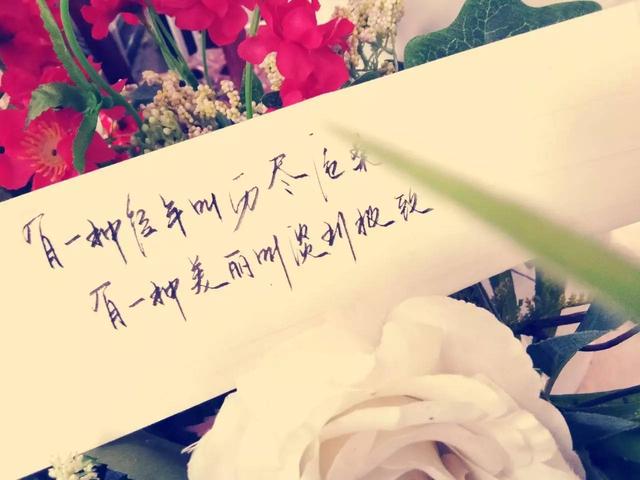 有一种经年叫历尽沧桑
有一种美丽叫淡到极致